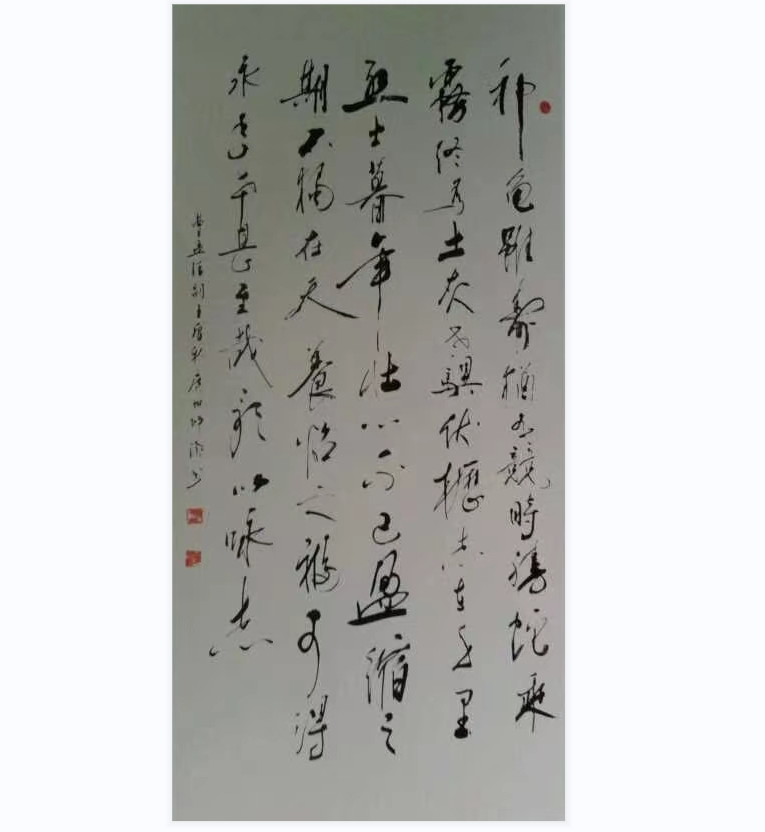 神龟雖壽猶有競時騰蛇乘
霧终为土灰老驥伏櫪志在千里
烈士暮年壮心不已盈縮之
期不獨在天養怡之福可得
永年幸甚至哉歌以咏志